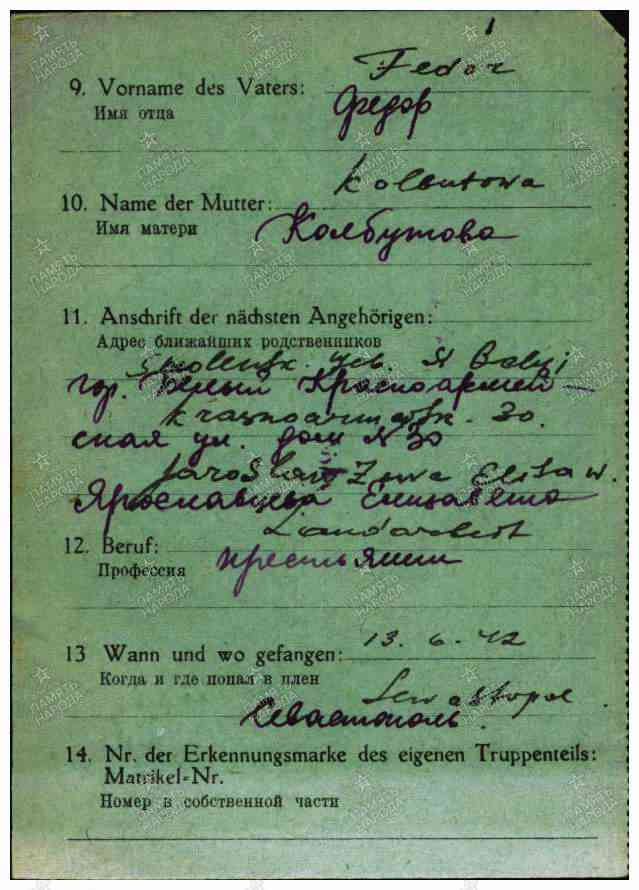 1
Fedor
9. Vorname des Vaters:
Имя отца
Федор
Kolbutowa
10. Name der Mutter:
Имя матери
Колбутова
11. Anschrift der nächsten Angehörigen:
Адрес ближайших родственников
Smolensk. Geb. N Belyi
гор. Белый Красноармей-
krasnoarmejsk. 30.
ская ул. дом N 30
Elisaw.
Ярославцева Елизавета
Landarbeit
12. Beruf:
Профессия
крестьянин
13.6.42
13 Wann und wo gefangen:
Когда и где попал в плен
Sewastopol
Севастополь.
14. Nr. der Erkennungsmarke des eigenen Truppenteils:
Matrikel-Nr.
Номер в собственной части